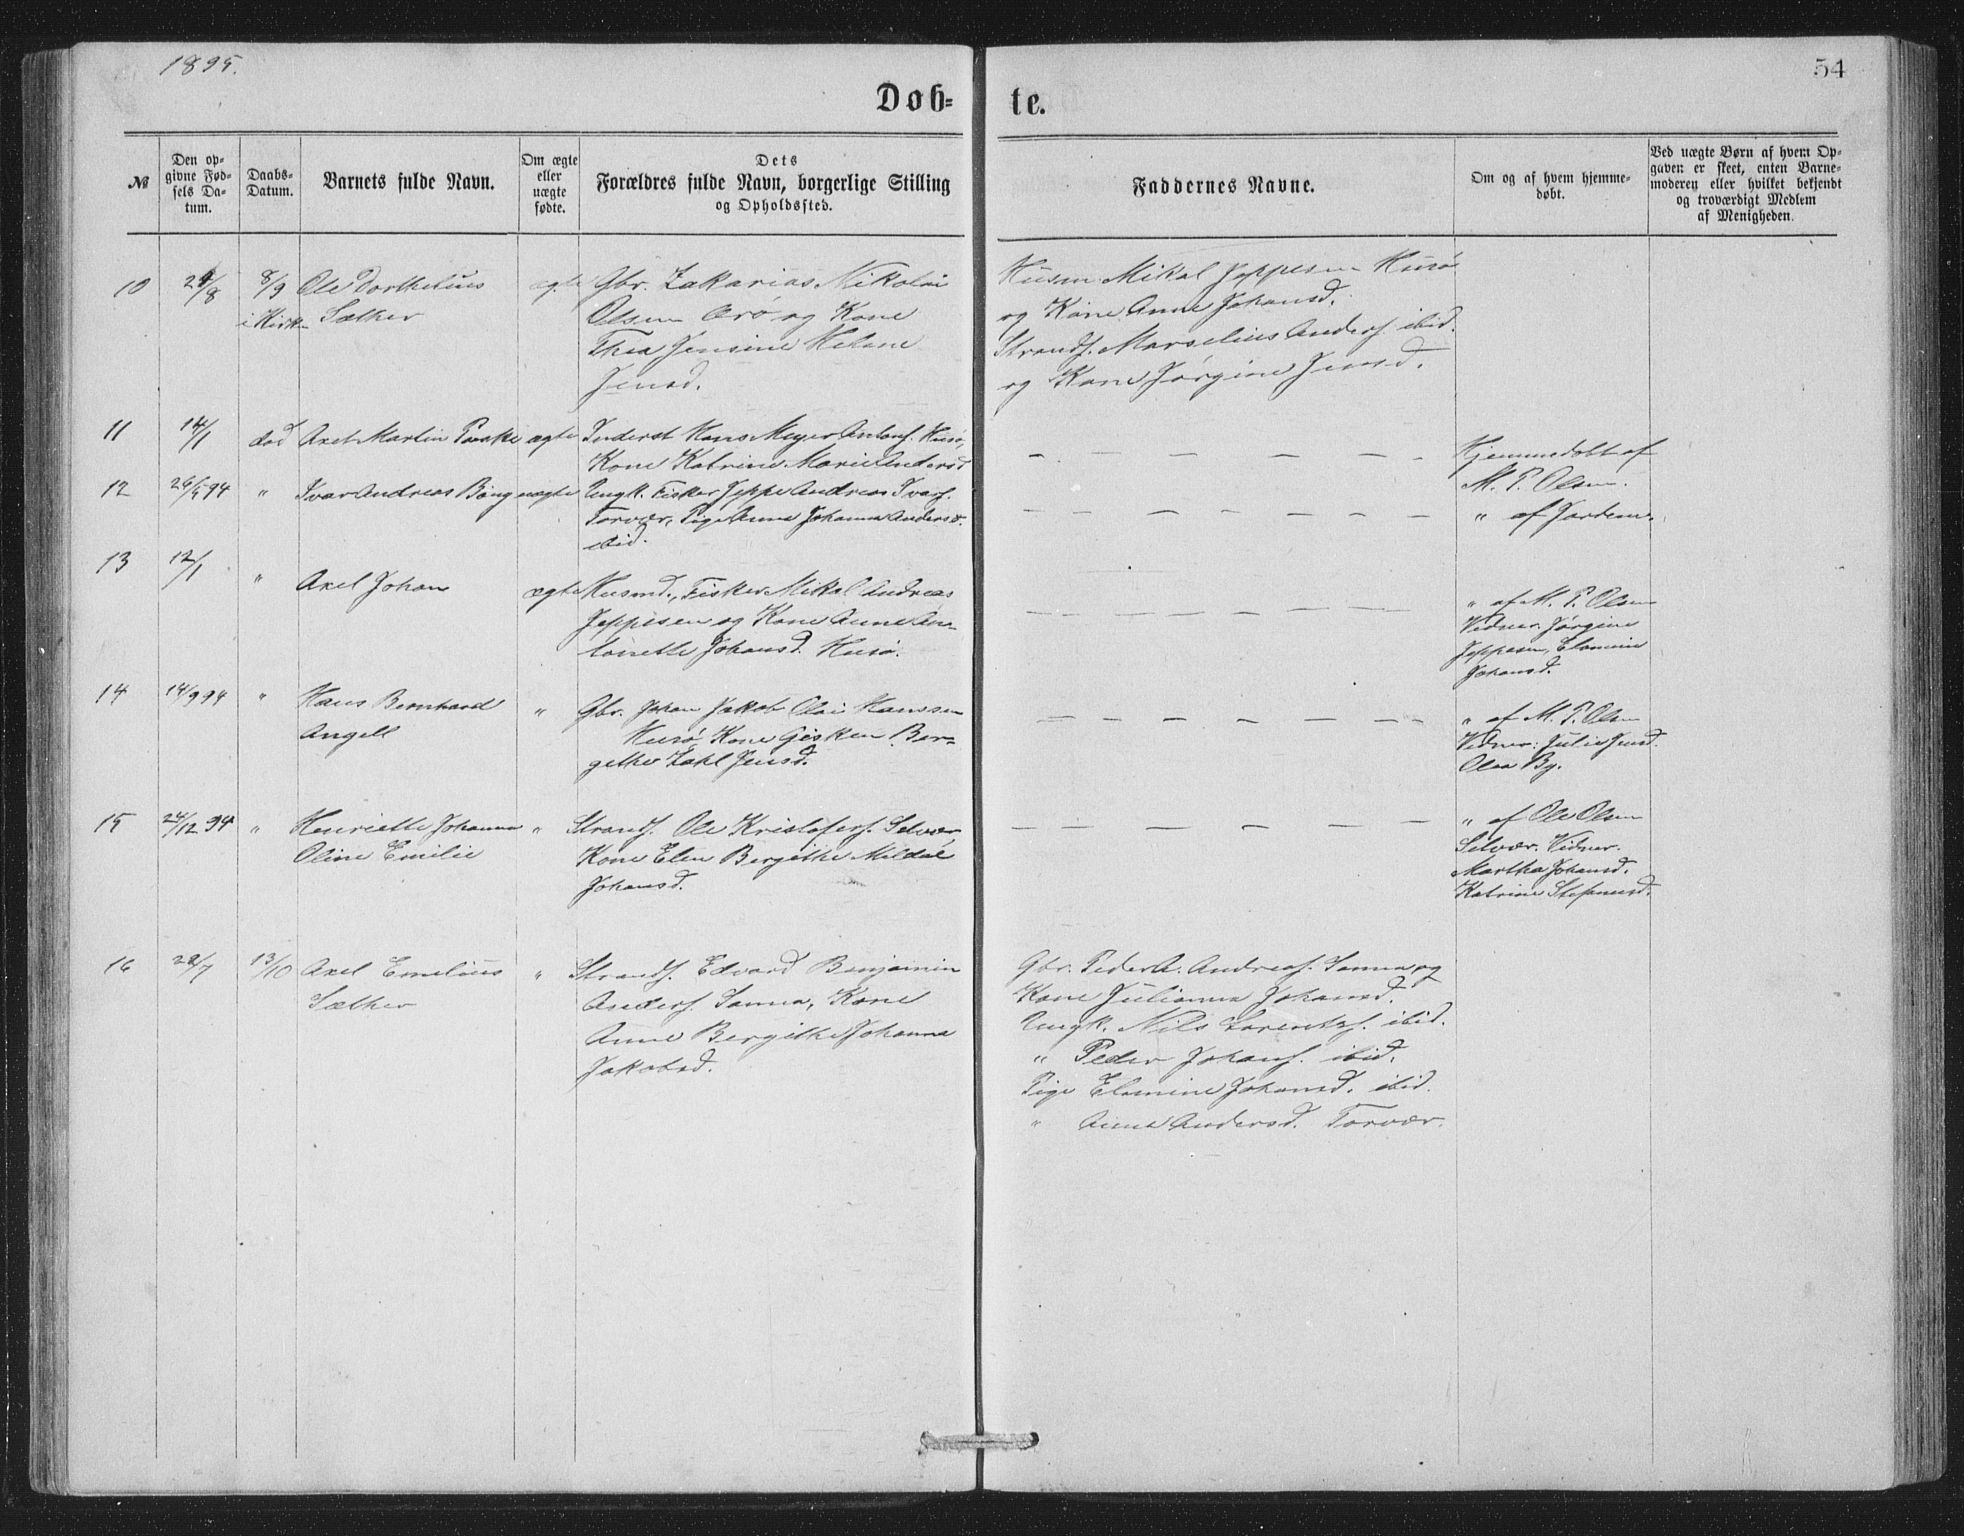 1895.
54
Döb-
te.
№
Den op-
givne Fød-
sels Da-
tum.
Daabs-
Datum.
Barnets fulde Navn.
Om ægte
eller
uægte
fødte.
Dets
Forældres fulde Navn, borgerlige Stilling
og Opholdssted.
Faddernes Navne.
Om og af hvem hjemme-
døbt.
Ved uægte Børn af hvem Op-
gaven er skeet, enten Barne-
moderen eller hvilket bekjendt
og troværdigt Medlem
af Menigheden.
10
/8
8/9
i Kirk.
Ole Dorthelius
Sæther
ægte
Gbr. Zakarias Nikolai
Olsen og Kone
Thea Jensine Helene
Jensd.
Husm. Mikal Jeppesen Husø
og Kone Anne Johansd.
Strands. Marselius Anders. ibid.
og Kone Jørgine Jensd.
11
14/1
død
Axel Martin Paaske
ægte
Inderst Hans Meyer Antons. Husø,
Kone Katrine Marie Andersd
— — — — — —
Hjemmedøbt af
M. P. Olsen.
12
26/ 94
"
Ivar Andreas Bång
uægte
Ungk. Fisker Jeppe Andreas Ivars.
Torvær, Pige Anna Johanna Andersd.
ibid.
— — — — — — —
" af Jordem.
13
12/1
"
Axel Johan
ægte
Husmd., Fisker Mikal Andreas
Jeppesen og Kone Anne An-
tonette Johansd. Husø.
— — — — — — —
" af M. P. Olsen
Vidner. Jørgine
Jeppesen, Elomine
Johansd.
14
14/9 94
"
Hans Bernhard
Angell
"
Gbr. Johan Jakob Olai Hanssen
Husø, Kone Gisken Ber-
gethe Zahl Jensd.
— — — — — — —
" af M. P. Olsen
Vidner: Julie Jensd.
Olea By.
15
24/12 94
"
Henriette Johanna
Oline Emilie
"
Strands. Ole Kristofers. Selvær
Kone Elen Bergithe Mildal
Johansd.
— — — — — — —
" af Ole Olsen
Selvær. Vidner.
Martha Johansd.
Katrine Stefanusd.
16
28/7
13/10
Axel Emelius
Sæther
"
Strands. Edvard Benjamin
Anders. Sanna, Kone
Anne Bergithe Johanna
Jakobsd.
Gbr. Peder A. Andreas. Sanna og
Kone Julianna Johansd.
Ungk. Nils Lorentzs. ibid.
" Peder Johans. ibid.
Pige Elomine Johansd. ibid.
" Anna Andersd. Torvær.